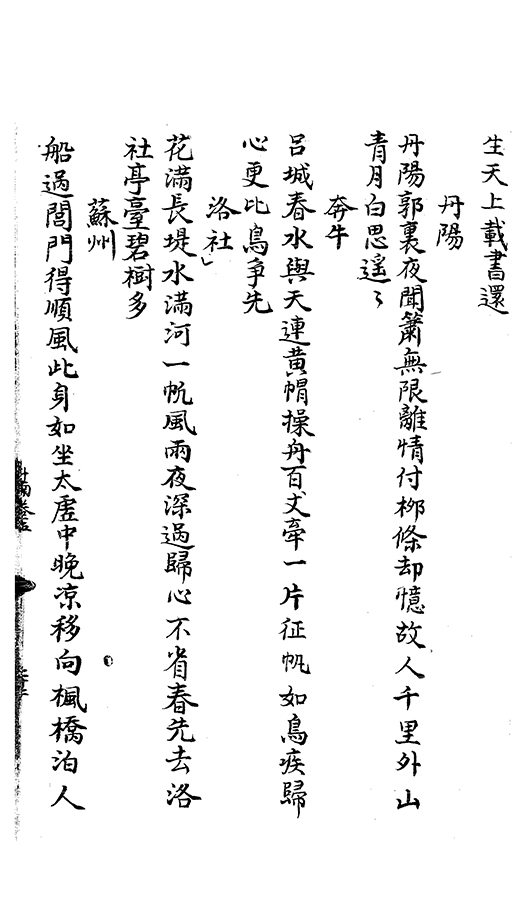 生天上載書還
丹陽
丹陽郭裏夜聞簫無限離情付栁條却憶故人千里外山
青月白思遥〻
奔牛
呂城春水與天連黄帽操舟百丈牵一片征帆如鳥疾歸
心更比鳥争先
洛社
花滿長堤水滿河一帆風雨夜深過歸心不省春先去洛
社亭臺碧樹多
蘇州
船過閶門得順風此身如坐太虚中晚凉移向楓橋泊人